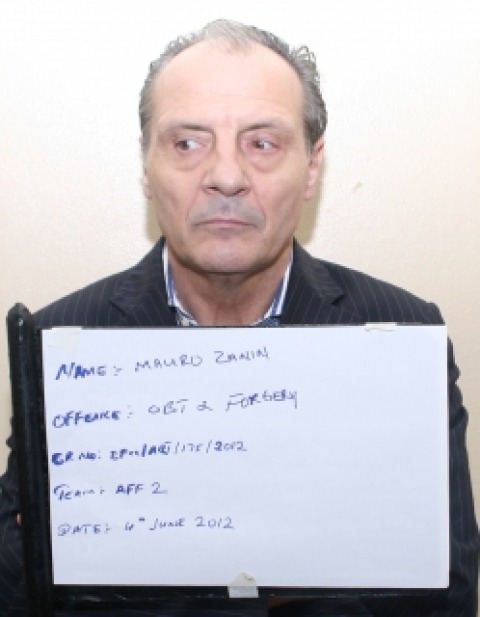 NAME:- MAURO ZANIN
OFFENCE:- OBT & FORGERY
CR NO: EFCC/ABJ/175/2012
TEAM:- AFF 2
DATE:- 4th JUNE 2012